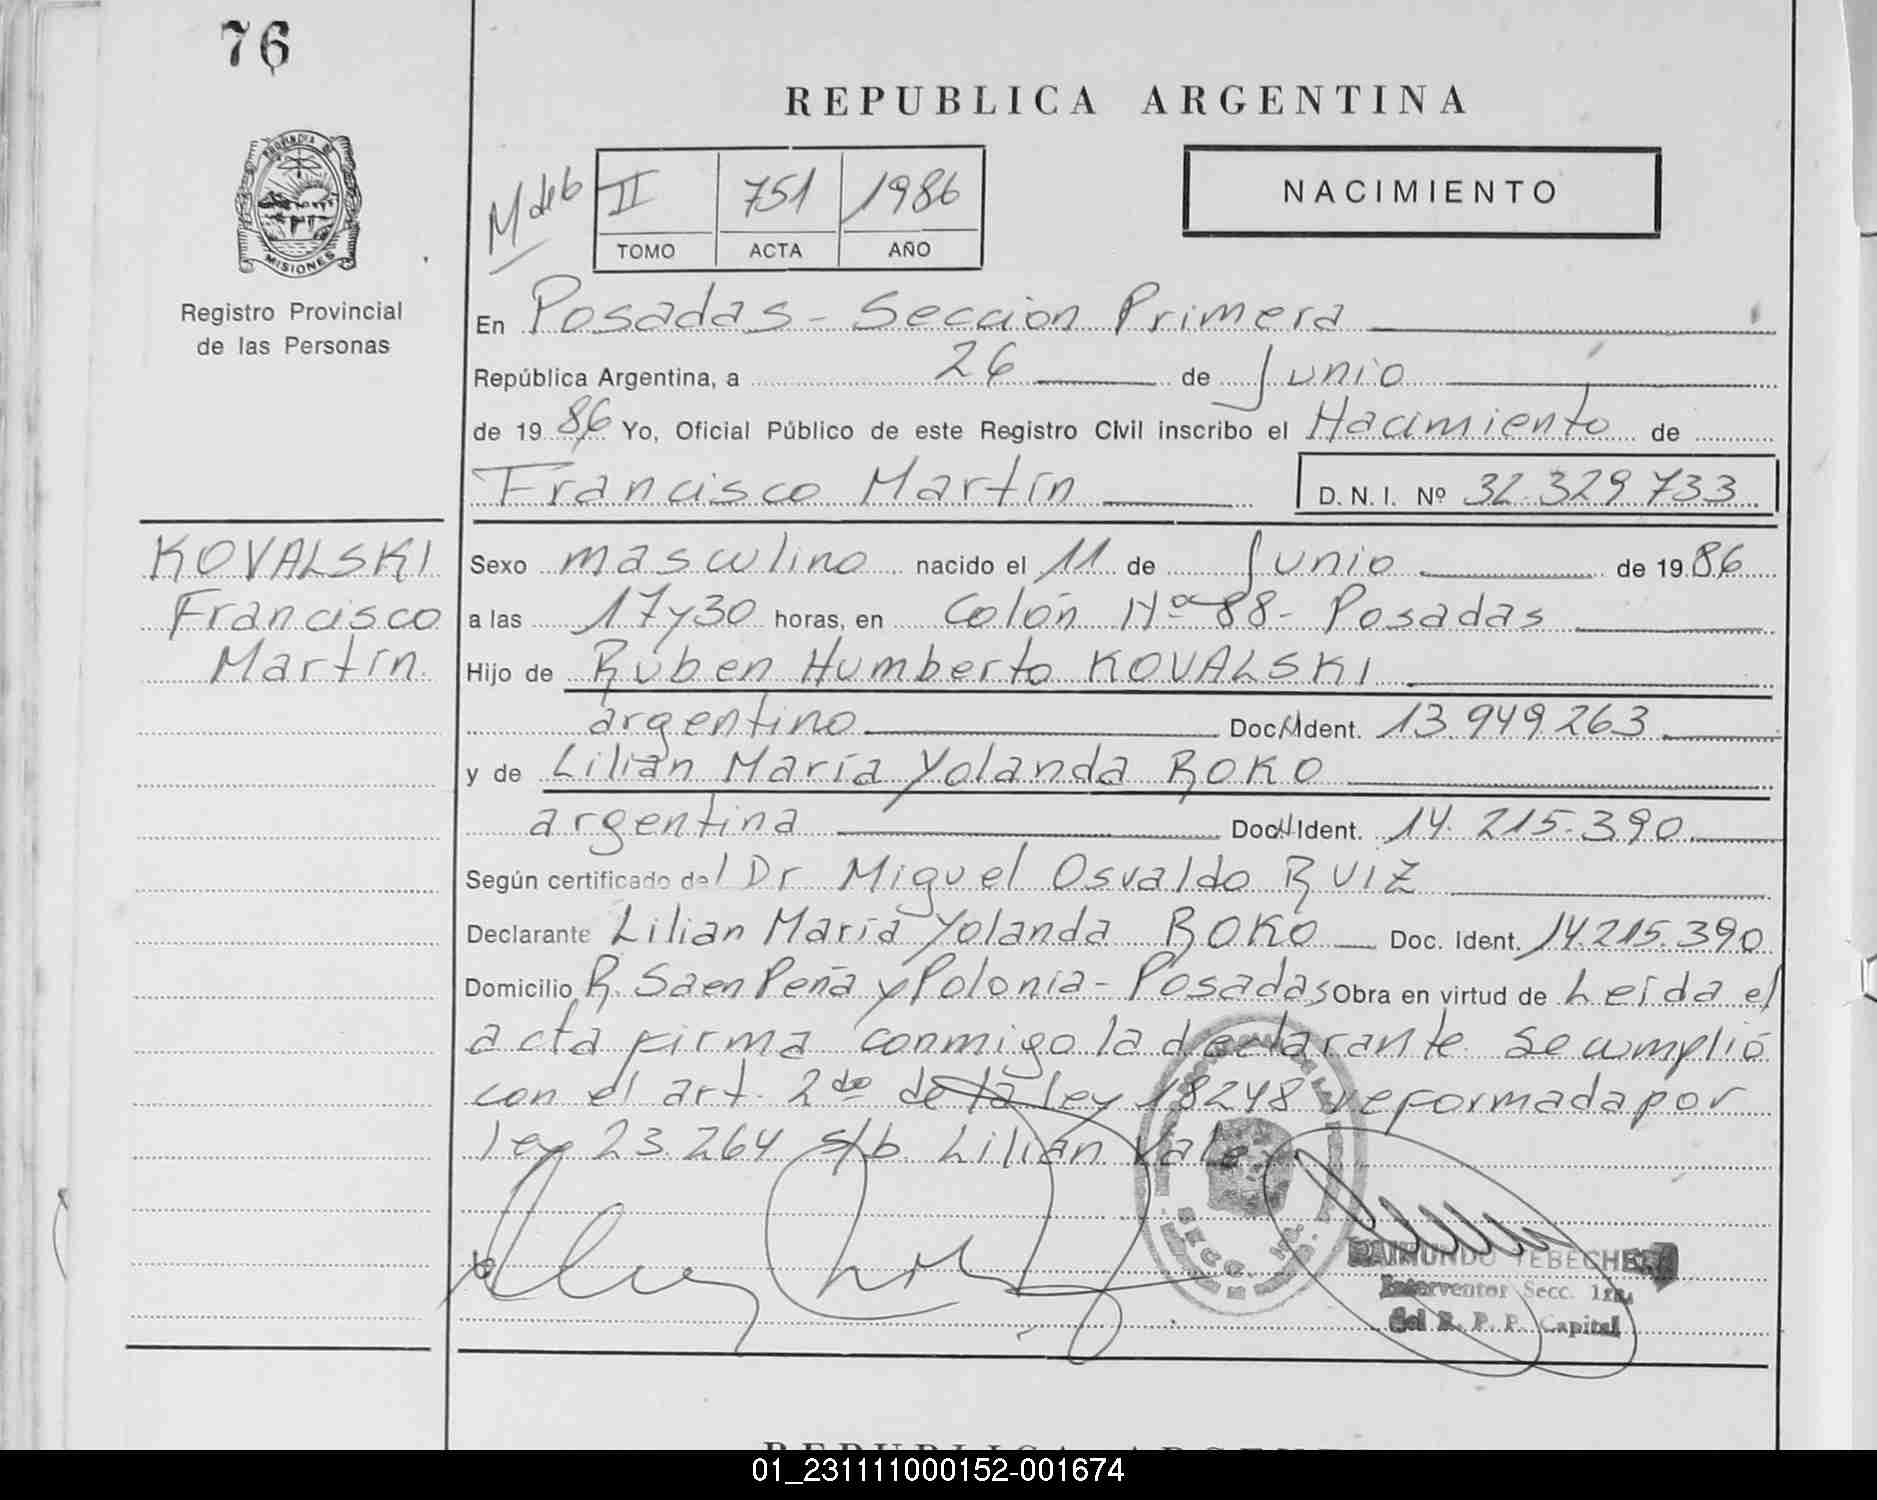 76
REPUBLICA ARGENTINA
PROVINCIA DE
MISIONES
Registro Provincial
de las Personas
M de b
II 751 1986
TOMO ACTA AÑO
NACIMIENTO
En Posadas - Seccion Primera
República Argentina, a 26 de Junio
de 19 86 Yo, Oficial Público de este Registro Civil inscribo el Nacimiento de
Francisco Martín D. N. I. Nº 32.329.733
KOVALSKI
Francisco
Martín.
Sexo masculino nacido el 11 de Junio de 19 86
a las 17 y 30 horas, en Colón Nº 88 - Posadas
Hijo de Rúben Humberto KOVALSKI
argentino Doc. Ident. 13.949.263
y de Lilián María Yolanda ROKO
argentina Doc. Ident. 14.215.390
Según certificado del Dr Miguel Osvaldo RUIZ
Declarante Lilian María Yolanda ROKO Doc. Ident. 14.215.390
Domicilio R. Saen Peña y Polonia - Posadas Obra en virtud de Leída el
acta firma conmigo la declarante se cumplió
con el art. 2do de la ley 18248 reformada por
ley 23.264 s/b Lilián Vale
SECC.
RAIMUNDO TEBECHER
Interventor Secc. 1ra.
del R. P. P. Capital
REPUBLICA ARGENTINA
01_231111000152-001674